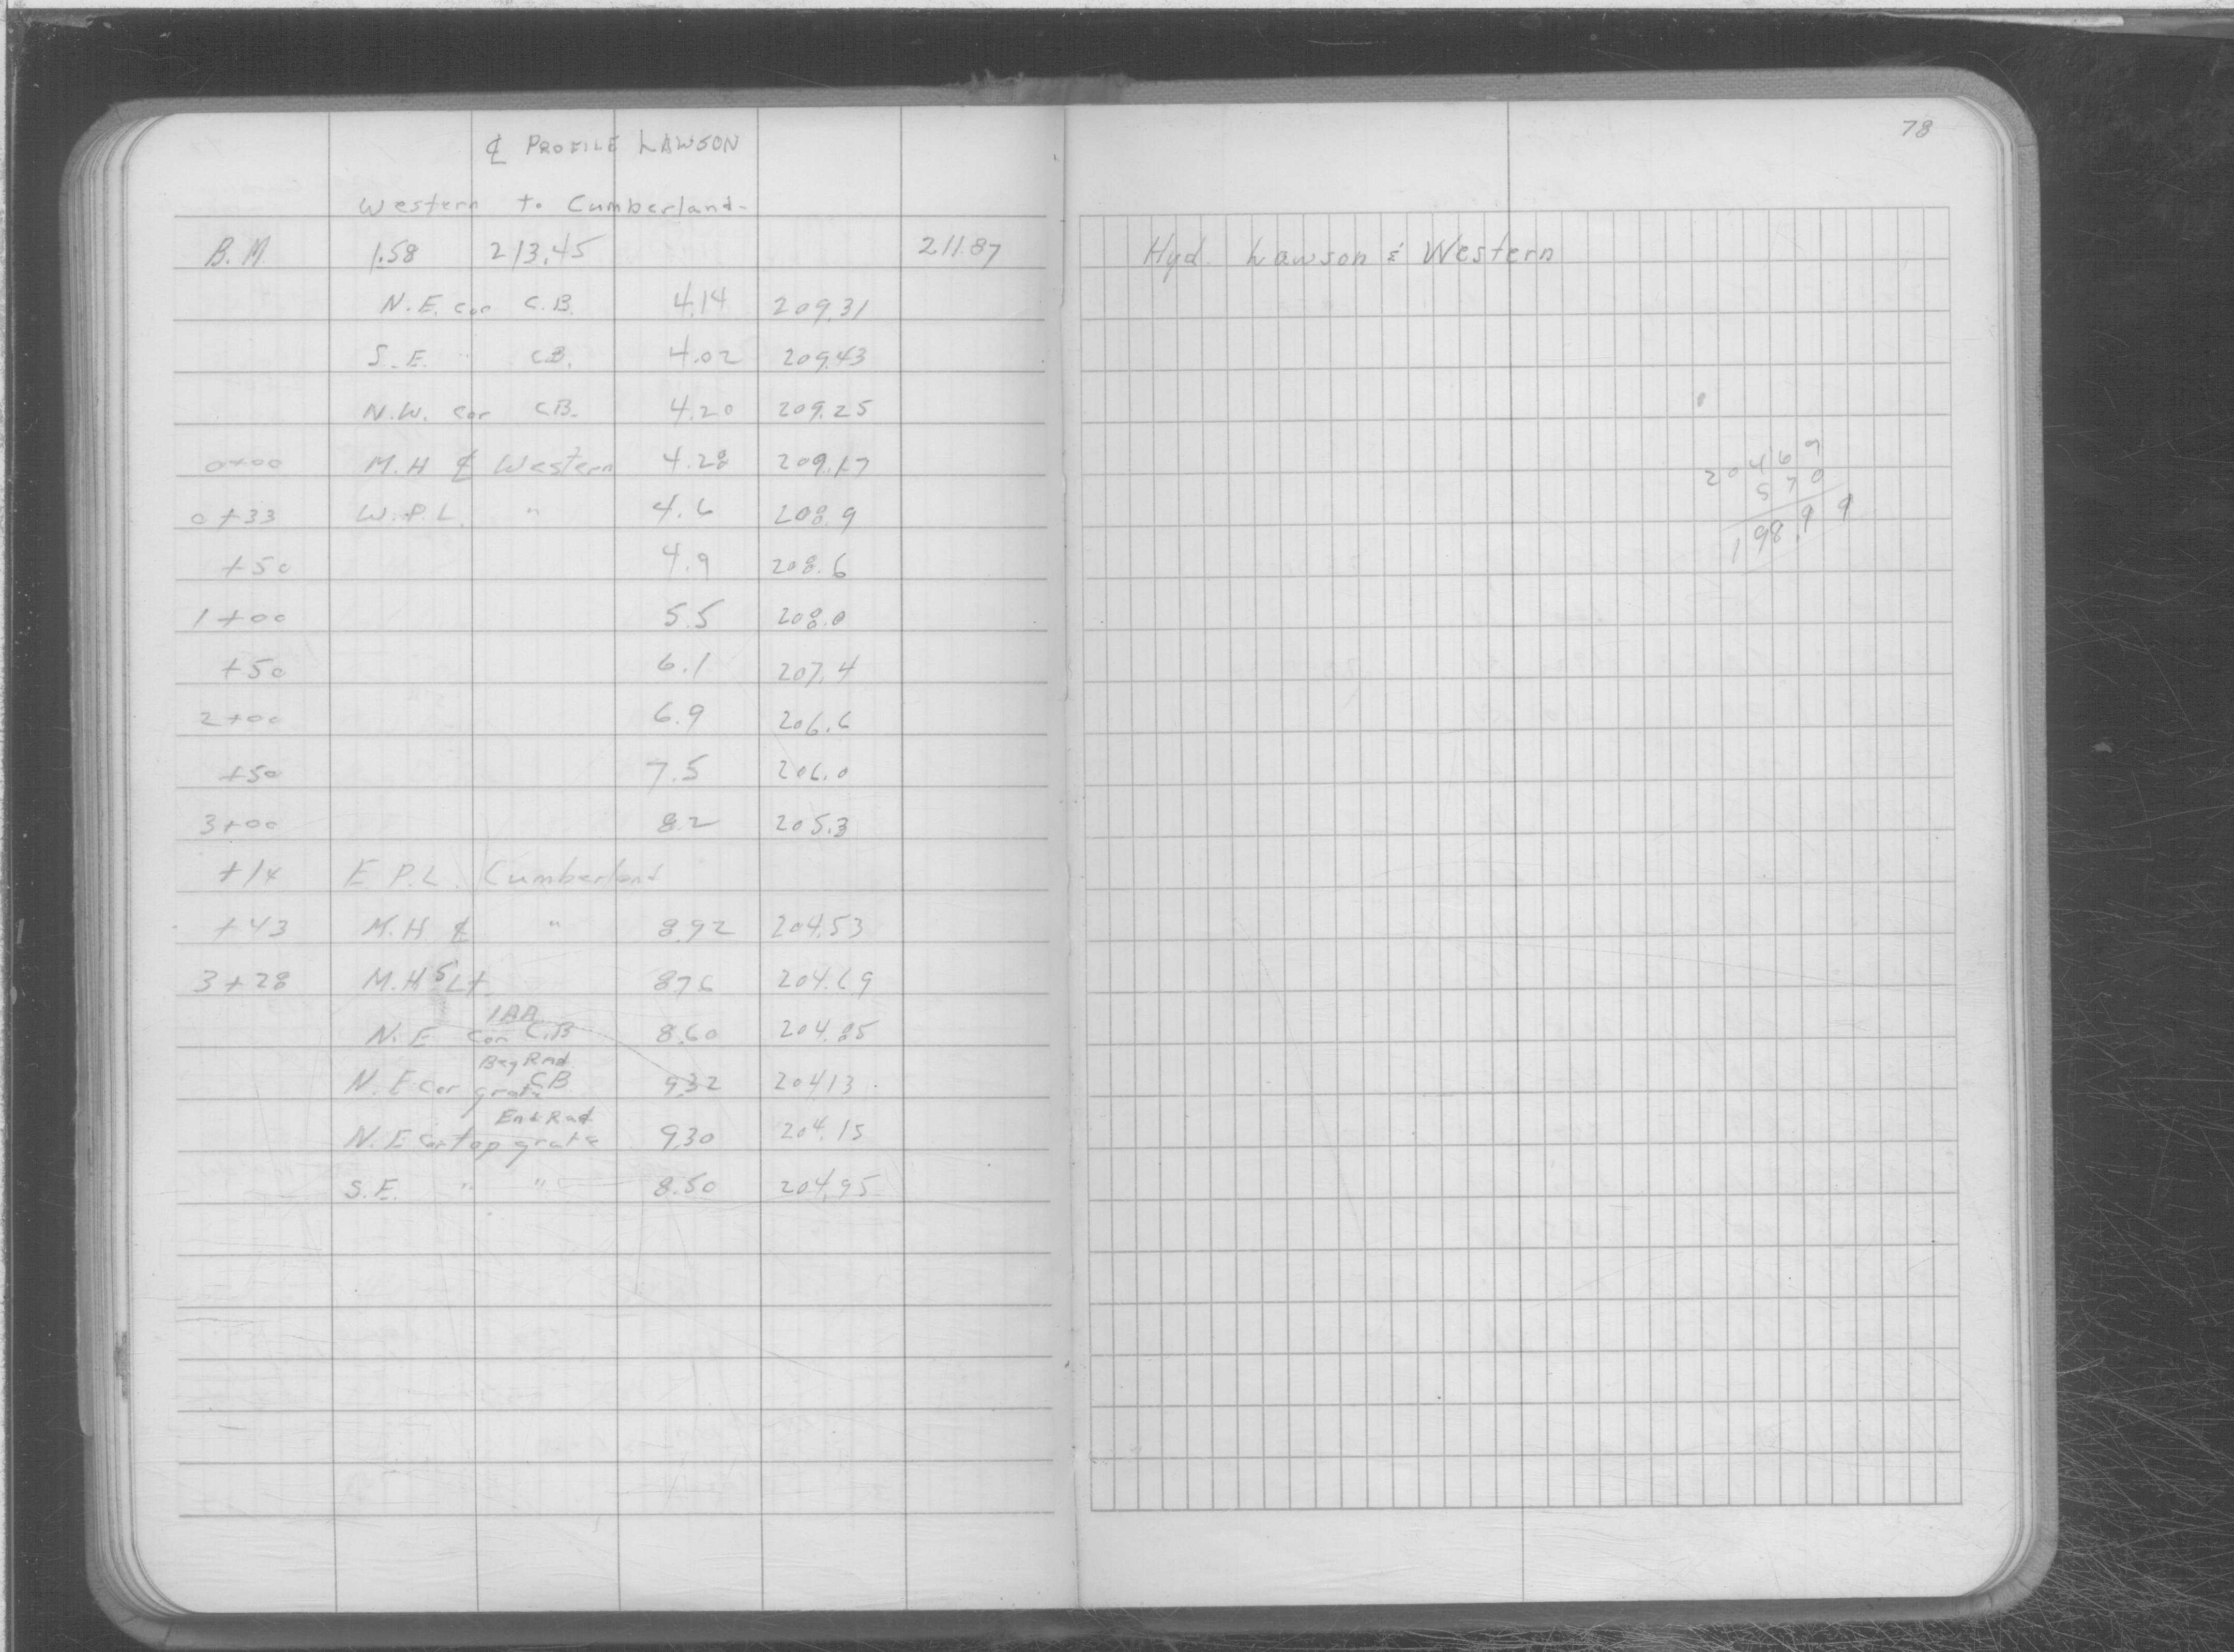 ℄ PROFILE LAWSON
Western to Cumberland
B.M 1.58 213.45 211.87
N.E. cor C.B. 4.14 209.31
S.E. " C.B. 4.02 209.43
N.W. cor C.B. 4.20 209.25
0+00 M.H ℄ Western 4.28 209.17
0+33 W.P.L. " 4.6 208.9
+50 4.9 208.6
1+00 5.5 208.0
+50 6.1 207.4
2+00 6.9 206.6
+50 7.5 206.0
3+00 8.2 205.3
+14 E P.L. Cumberland
+43 M.H. ℄ " 8.92 204.53
3+28 M.H 5' Lt 8.76 204.69
N.E cor C.B 8.60 204.85
Beg Rad
N.E cor grate C.B. 9.32 204.13
End Rad
N.E cor top grate 9.30 204.15
S.E. " " 8.50 204.95
78
Hyd. Lawson & Western
204 69
5 70
198.99